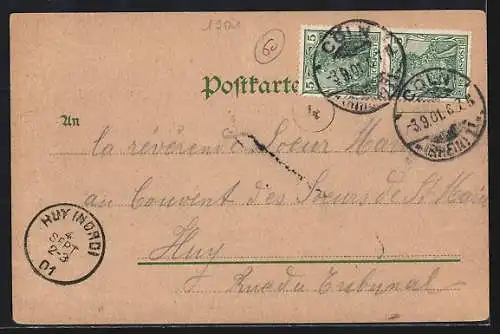 1901
5
Postkarte
CÖLN
3.9.01
(RHEIN)
CÖLN
3.9.01. 6-7 N
(RHEIN) 11
An
La révérende Soeur Marie
au Couvent des Soeurs de St Marie
Huy
Rue du Tribunal
HUY (NORD)
4
SEPT
2-3
01